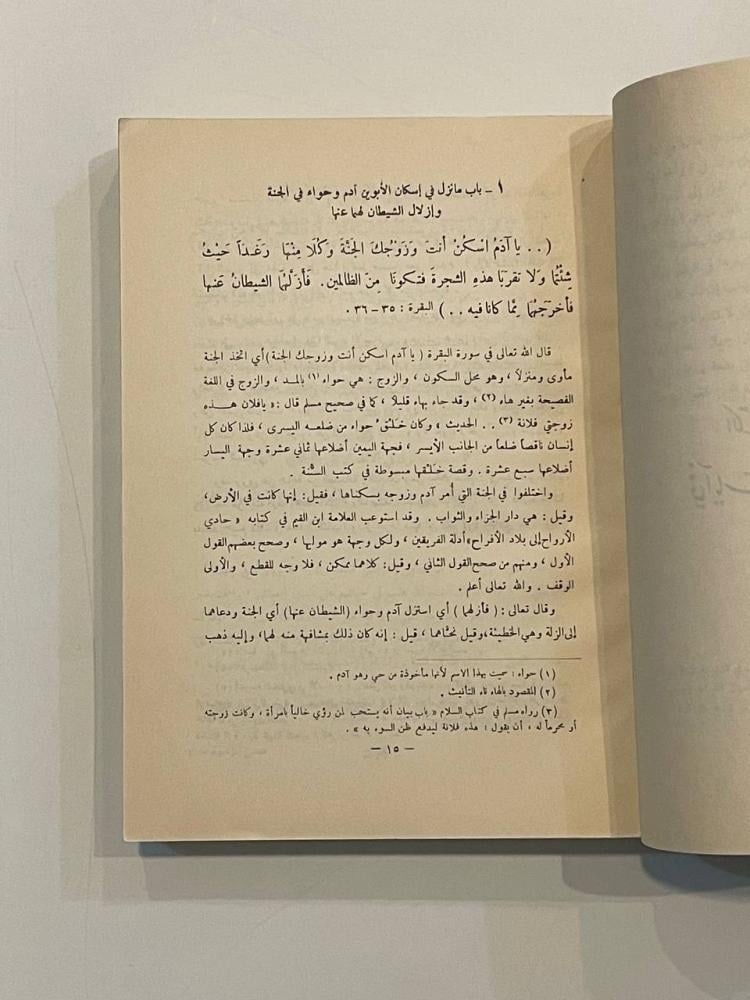 ١ – باب مانزل في إسكان الأبوين آدم وحواء في الجنة
وإزلال الشيطان لهما عنها
( . . يا آدَمُ اسْكُنْ أنتَ وَزَوْجُكَ الجَنَّةَ وَكُلَا مِنْهَا رَغَداً حَيْثُ
شِئْتُمَا وَلَا تقربَا هذهِ الشجرةَ فتَكونَا مِنَ الظالمين. فَأَزَلَّهُمَا الشيطانُ عَنها
فأخرَجَهُمَا مِمَّا كانا فيه . . ) البقرة : ٣٥ – ٣٦ .
قال الله تعالى في سورة البقرة ( يا آدم اسكن أنت وزوجك الجنة) أي اتخذ الجنة
مأوى ومنزلاً ، وهو محل السكون ، والزوج : هي حواء (١) بالمد ، والزوج في اللغة
الفصيحة بغير هاء (٢) ، وقد جاء بهاء قليلاً ، كما في صحيح مسلم قال : « يافلان هذه
زوجتي فلانة (٣) . . الحديث » وكان خَلْقُ حواء من ضلعه اليسرى ، فلذا كان كل
إنسان ناقصاً ضلعاً من الجانب الأيسر ، فجهة اليمين أضلاعها ثماني عشرة وجهة اليسار
أضلاعها سبع عشرة . وقصة خَلْقها مبسوطة في كتب السُّنة .
واختلفوا في الجنة التي أُمر آدم وزوجه بسكناها ، فقيل : إنها كانت في الأرض،
وقيل : هي دار الجزاء والثواب . وقد استوعب العلامة ابن القيم في كتابه « حادي
الأرواح إلى بلاد الأفراح» أدلة الفريقين ، ولكل وجهة هو موليها ، وصحح بعضهم القول
الأول ، ومنهم من صحح القول الثاني ، وقيل : كلاهما ممكن ، فلا وجه للقطع ، والأولى
الوقف . والله تعالى أعلم .
وقال تعالى : ( فأزلهما ) أي استزل آدم وحواء (الشيطان عنها) أي الجنة ودعاهما
إلى الزلة وهي الخطيئة، وقيل نحَّاهما ، قيل : إنه كان ذلك بمشافهة منه لهما، وإليه ذهب
(١) حواء : سميت بهذا الاسم لأنها مأخوذة من حي وهو آدم .
(٢) المقصود بالهاء تاء التأنيث .
(٣) رواه مسلم في كتاب السلام « باب بيان أنه يستحب لمن رؤي خالياً بامرأة ، وكانت زوجته
أو محرماً له ، أن يقول : هذه فلانة ليدفع ظن السوء به » .
– ١٥ –